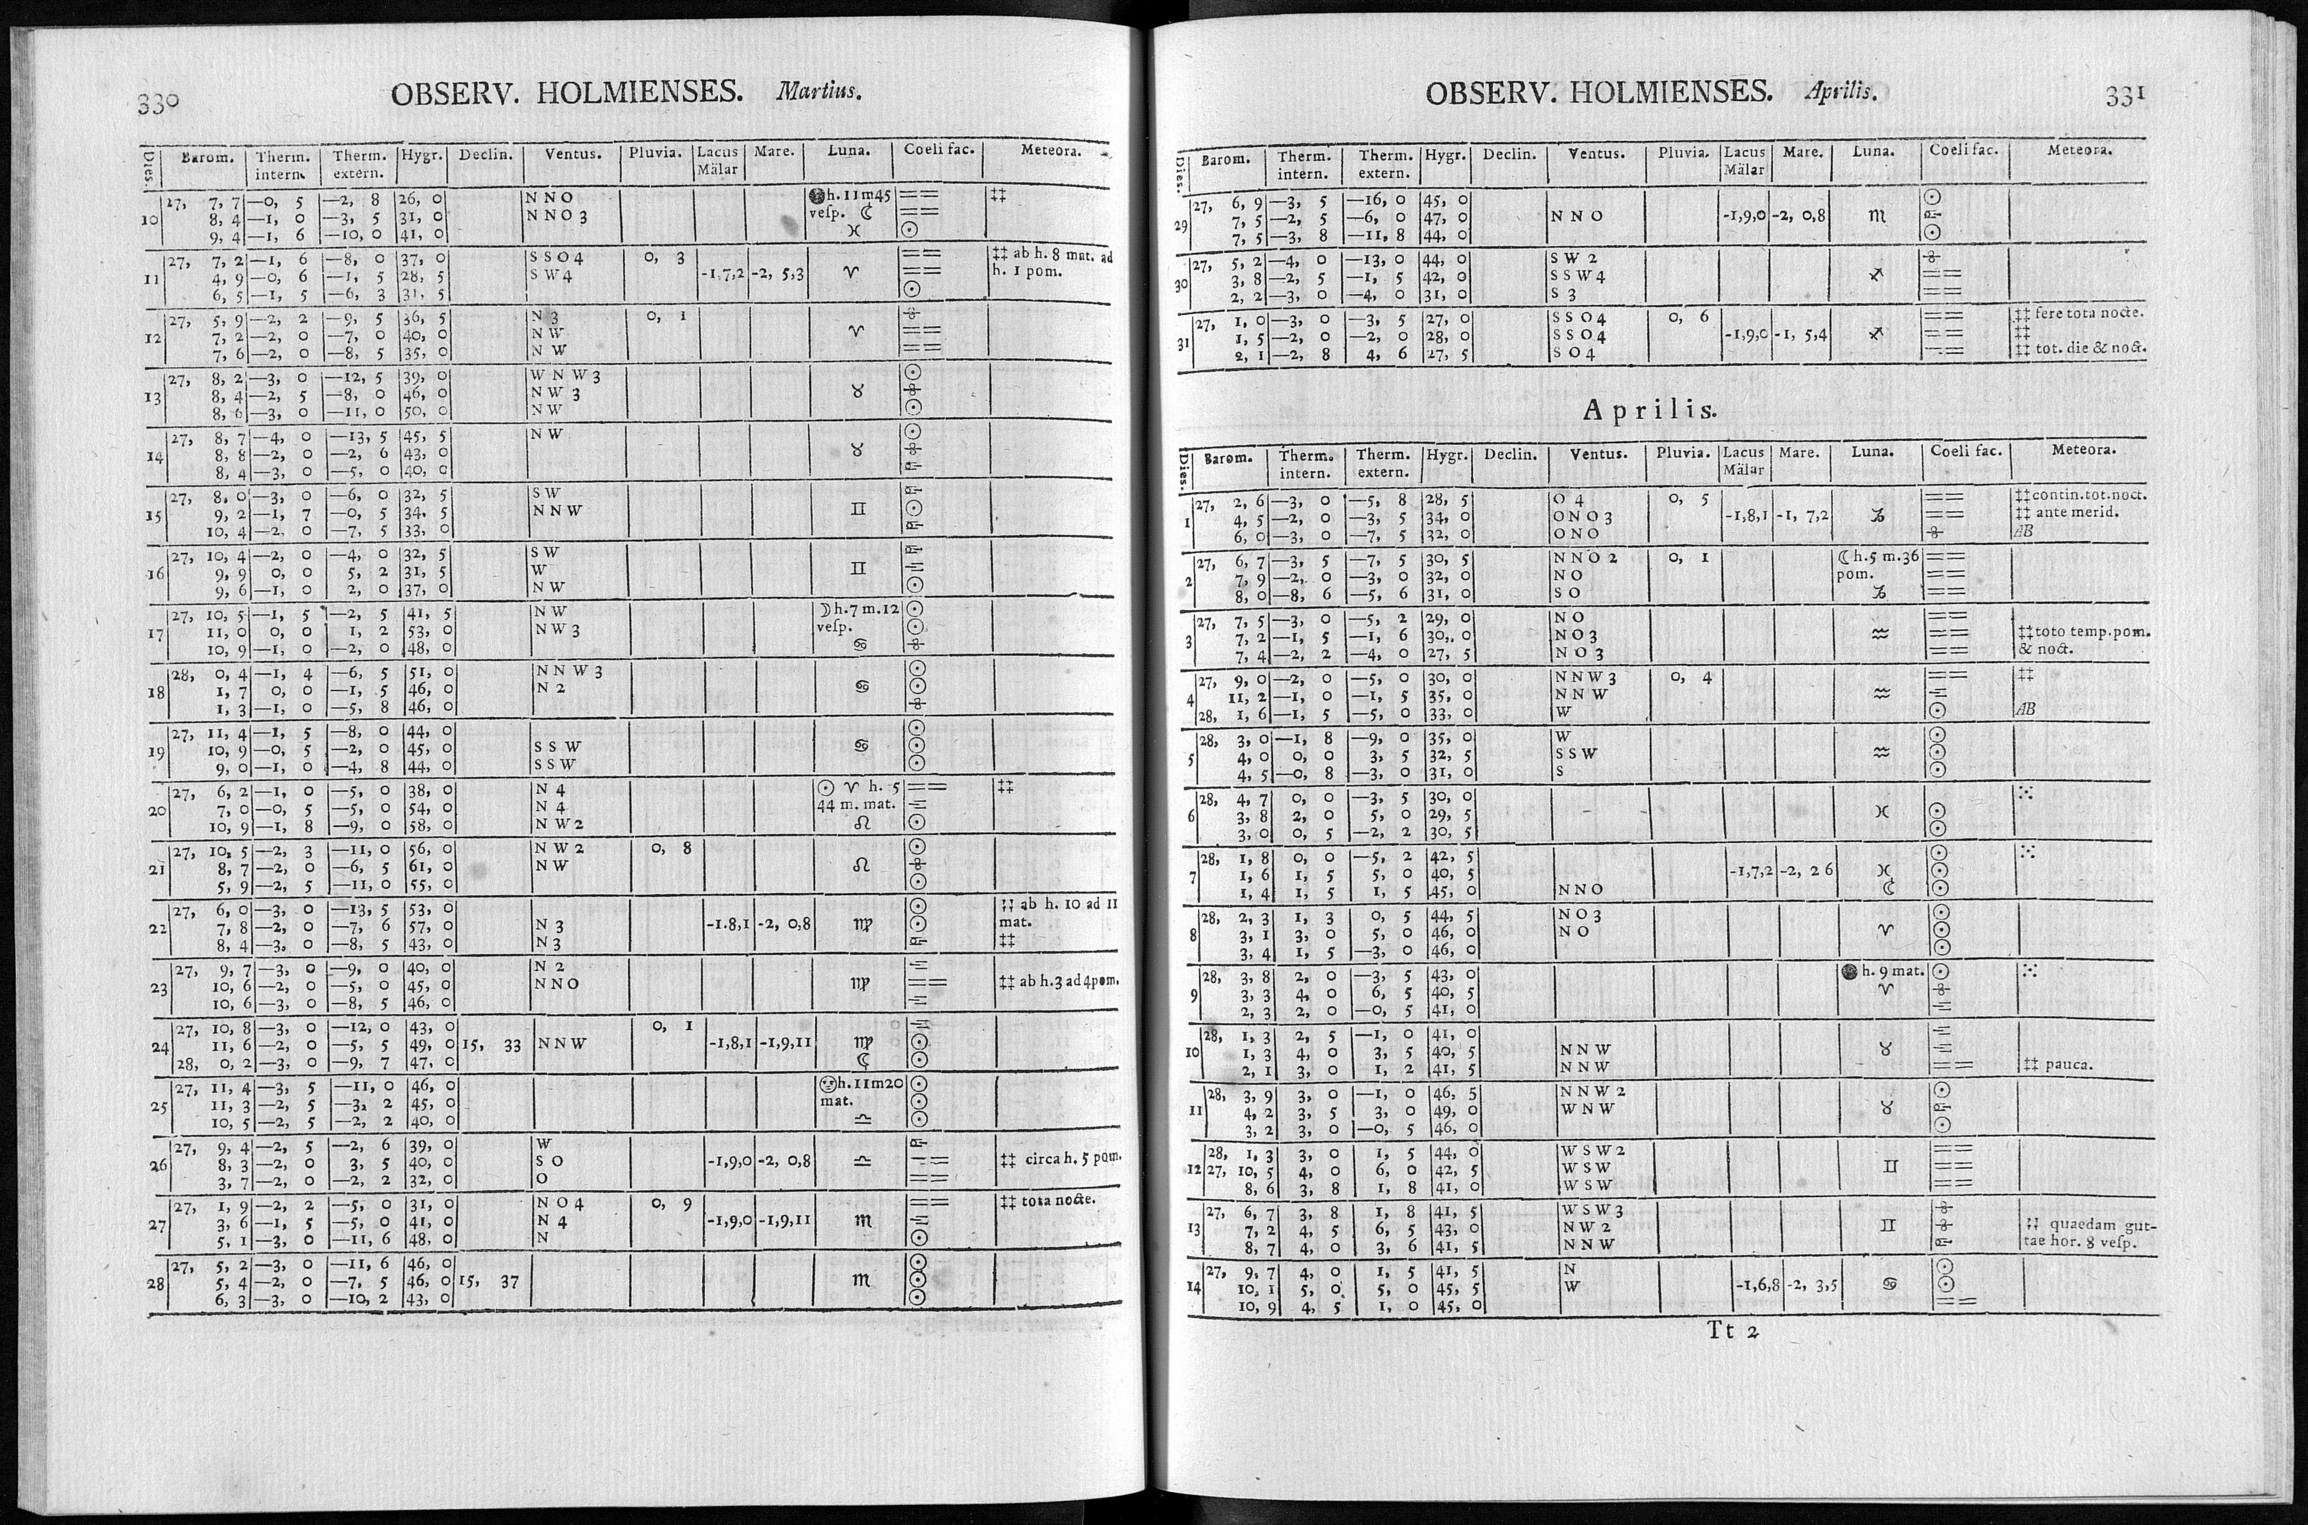 330
OBSERV. HOLMIENSES. Martius.
Dies. Barom. Therm. intern. Therm. extern. Hygr. Declin. Ventus. Pluvia. Lacus Mälar Mare. Luna. Coeli fac. Meteora.
27, 7, 7 —0, 5 —2, 8 26, 0 N N O h. 11 m 45 == ‡‡
10 8, 4 —1, 0 —3, 5 31, 0 N N O 3 veſp. ☾ ==
9, 4 —1, 6 —10, 0 41, 0 ♓ ☉
27, 7, 2 —1, 6 —8, 0 37, 0 S S O 4 0, 3 == ‡‡ ab h. 8 mat. ad
11 4, 9 —0, 6 —1, 5 28, 5 S W 4 -1,7,2 -2, 5,3 ♈ == h. 1 pom.
6, 5 —1, 5 —6, 3 31, 5 ☉
27, 5, 9 —2, 2 —9, 5 36, 5 N 3 0, 1
12 7, 2 —2, 0 —7, 0 40, 0 N W ♈ ==
7, 6 —2, 0 —8, 5 35, 0 N W ==
27, 8, 2 —3, 0 —12, 5 39, 0 W N W 3 ☉
13 8, 4 —2, 5 —8, 0 46, 0 N W 3 ♉
8, 6 —3, 0 —11, 0 50, 0 N W ☉
27, 8, 7 —4, 0 —13, 5 45, 5 N W ☉
14 8, 8 —2, 0 —2, 6 43, 0 ♉
8, 4 —3, 0 —5, 0 40, 0
27, 8, 0 —3, 0 —6, 0 32, 5 S W
15 9, 2 —1, 7 —0, 5 34, 5 N N W ♊ ☉
10, 4 —2, 0 —7, 5 33, 0
27, 10, 4 —2, 0 —4, 0 32, 5 S W
16 9, 9 0, 0 5, 2 31, 5 W ♊
9, 6 —1, 0 2, 0 37, 0 N W ☉
27, 10, 5 —1, 5 —2, 5 41, 5 N W ☽ h. 7 m. 12 ☉
17 11, 0 0, 0 1, 2 53, 0 N W 3 veſp. ☉
10, 9 —1, 0 —2, 0 48, 0 ♋
28, 0, 4 —1, 4 —6, 5 51, 0 N N W 3 ☉
18 1, 7 0, 0 —1, 5 46, 0 N 2 ♋ ☉
1, 3 —1, 0 —5, 8 46, 0
27, 11, 4 —1, 5 —8, 0 44, 0 ☉
19 10, 9 —0, 5 —2, 0 45, 0 S S W ♋ ☉
9, 0 —1, 0 —4, 8 44, 0 S S W ☉
27, 6, 2 —1, 0 —5, 0 38, 0 N 4 ☉ ♈ h. 5 == ‡‡
20 7, 0 —0, 5 —5, 0 54, 0 N 4 44 m. mat.
10, 9 —1, 8 —9, 0 58, 0 N W 2 ♌ ☉
27, 10, 5 —2, 3 —11, 0 56, 0 N W 2 0, 8 ☉
21 8, 7 —2, 0 —6, 5 61, 0 N W ♌
5, 9 —2, 5 —11, 0 55, 0 ☉
27, 6, 0 —3, 0 —13, 5 53, 0 ☉ ab h. 10 ad 11
22 7, 8 —2, 0 —7, 6 57, 0 N 3 -1.8,1 -2, 0,8 ♍ ☉ mat.
8, 4 —3, 0 —8, 5 43, 0 N 3 ‡‡
27, 9, 7 —3, 0 —9, 0 40, 0 N 2
23 10, 6 —2, 0 —5, 0 45, 0 N N O ♍ == ‡‡ ab h. 3 ad 4 pom.
10, 6 —3, 0 —8, 5 46, 0
27, 10, 8 —3, 0 —12, 0 43, 0 0, 1
24 11, 6 —2, 0 —5, 5 49, 0 15, 33 N N W -1,8,1 -1,9,11 ♍ ☉
28, 0, 2 —3, 0 —9, 7 47, 0 ☾ ☉
27, 11, 4 —3, 5 —11, 0 46, 0 h. 11 m 20 ☉
25 11, 3 —2, 5 —3, 2 45, 0 mat. ☉
10, 5 —2, 5 —2, 2 40, 0 ♎ ☉
27, 9, 4 —2, 5 —2, 6 39, 0 W
26 8, 3 —2, 0 3, 5 40, 0 S O -1,9,0 -2, 0,8 ♎ == ‡‡ circa h. 5 pom.
3, 7 —2, 0 —2, 2 32, 0 O ==
27, 1, 9 —2, 2 —5, 0 31, 0 N O 4 0, 9 == ‡‡ tota nocte.
27 3, 6 —1, 5 —5, 0 41, 0 N 4 -1,9,0 -1,9,11 ♏
5, 1 —3, 0 —11, 6 48, 0 N ☉
27, 5, 2 —3, 0 —11, 6 46, 0 ☉
28 5, 4 —2, 0 —7, 5 46, 0 15, 37 ♏ ☉
6, 3 —3, 0 —10, 2 43, 0 ☉
OBSERV. HOLMIENSES. Aprilis.
331
Dies. Barom. Therm. intern. Therm. extern. Hygr. Declin. Ventus. Pluvia. Lacus Mälar Mare. Luna. Coeli fac. Meteora.
27, 6, 9 —3, 5 —16, 0 45, 0 ☉
29 7, 5 —2, 5 —6, 0 47, 0 N N O -1,9,0 -2, 0,8 ♏
7, 5 —3, 8 —11, 8 44, 0 ☉
27, 5, 2 —4, 0 —13, 0 44, 0 S W 2
30 3, 8 —2, 5 —1, 5 42, 0 S S W 4 ♐ ==
2, 2 —3, 0 —4, 0 31, 0 S 3 ==
27, 1, 0 —3, 0 —3, 5 27, 0 S S O 4 0, 6 == ‡‡ fere tota nocte.
31 1, 5 —2, 0 —2, 0 28, 0 S S O 4 -1,9,0 -1, 5,4 ♐ == ‡‡
2, 1 —2, 8 4, 6 27, 5 S O 4 == ‡‡ tot. die & noct.
Aprilis.
Dies. Barom. Therm. intern. Therm. extern. Hygr. Declin. Ventus. Pluvia. Lacus Mälar Mare. Luna. Coeli fac. Meteora.
27, 2, 6 —3, 0 —5, 8 28, 5 O 4 0, 5 == ‡‡ contin. tot. noct.
1 4, 5 —2, 0 —3, 5 34, 0 O N O 3 -1,8,1 -1, 7,2 ♑ == ‡‡ ante merid.
6, 0 —3, 0 —7, 5 32, 0 O N O AB
27, 6, 7 —3, 5 —7, 5 30, 5 N N O 2 0, 1 ☾ h. 5 m. 36 ==
2 7, 9 —2, 0 —3, 0 32, 0 N O pom. ==
8, 0 —8, 6 —5, 6 31, 0 S O ♑ ==
27, 7, 5 —3, 0 —5, 2 29, 0 N O ==
3 7, 2 —1, 5 —1, 6 30, 0 N O 3 ♒ == ‡‡ toto temp. pom.
7, 4 —2, 2 —4, 0 27, 5 N O 3 == & noct.
27, 9, 0 —2, 0 —5, 0 30, 0 N N W 3 0, 4 == ‡‡
4 11, 2 —1, 0 —1, 5 35, 0 N N W ♒
28, 1, 6 —1, 5 —5, 0 33, 0 W ☉ AB
28, 3, 0 —1, 8 —9, 0 35, 0 W ☉
5 4, 0 0, 0 3, 5 32, 5 S S W ♒ ☉
4, 5 —0, 8 —3, 0 31, 0 S ☉
28, 4, 7 0, 0 —3, 5 30, 0
6 3, 8 2, 0 5, 0 29, 5 ♓ ☉
3, 0 0, 5 —2, 2 30, 5 ☉
28, 1, 8 0, 0 —5, 2 42, 5 ☉
7 1, 6 1, 5 5, 0 40, 5 -1,7,2 -2, 2 6 ♓ ☉
1, 4 1, 5 1, 5 45, 0 N N O ☾ ☉
28, 2, 3 1, 3 0, 5 44, 5 N O 3 ☉
8 3, 1 3, 0 5, 0 46, 0 N O ♈ ☉
3, 4 1, 5 —3, 0 46, 0 ☉
28, 3, 8 2, 0 —3, 5 43, 0 h. 9 mat. ☉
9 3, 3 4, 0 6, 5 40, 5 ♈
2, 3 2, 0 —0, 5 41, 0
28, 1, 3 2, 5 —1, 0 41, 0
10 1, 3 4, 0 3, 5 40, 5 N N W ♉
2, 1 3, 0 1, 2 41, 5 N N W == ‡‡ pauca.
28, 3, 9 3, 0 —1, 0 46, 5 N N W 2 ☉
11 4, 2 3, 5 3, 0 49, 0 W N W ♉
3, 2 3, 0 —0, 5 46, 0 ☉
28, 1, 3 3, 0 1, 5 44, 0 W S W 2 ==
12 27, 10, 5 4, 0 6, 0 42, 5 W S W ♊ ==
8, 6 3, 8 1, 8 41, 0 W S W ==
27, 6, 7 3, 8 1, 8 41, 5 W S W 3
13 7, 2 4, 5 6, 5 43, 0 N W 2 ♊ quaedam gut-
8, 7 4, 0 3, 6 41, 5 N N W tae hor. 8 veſp.
27, 9, 7 4, 0 1, 5 41, 5 N ☉
14 10, 1 5, 0 5, 0 45, 5 W -1,6,8 -2, 3,5 ♋ ☉
10, 9 4, 5 1, 0 45, 0 ==
Tt 2